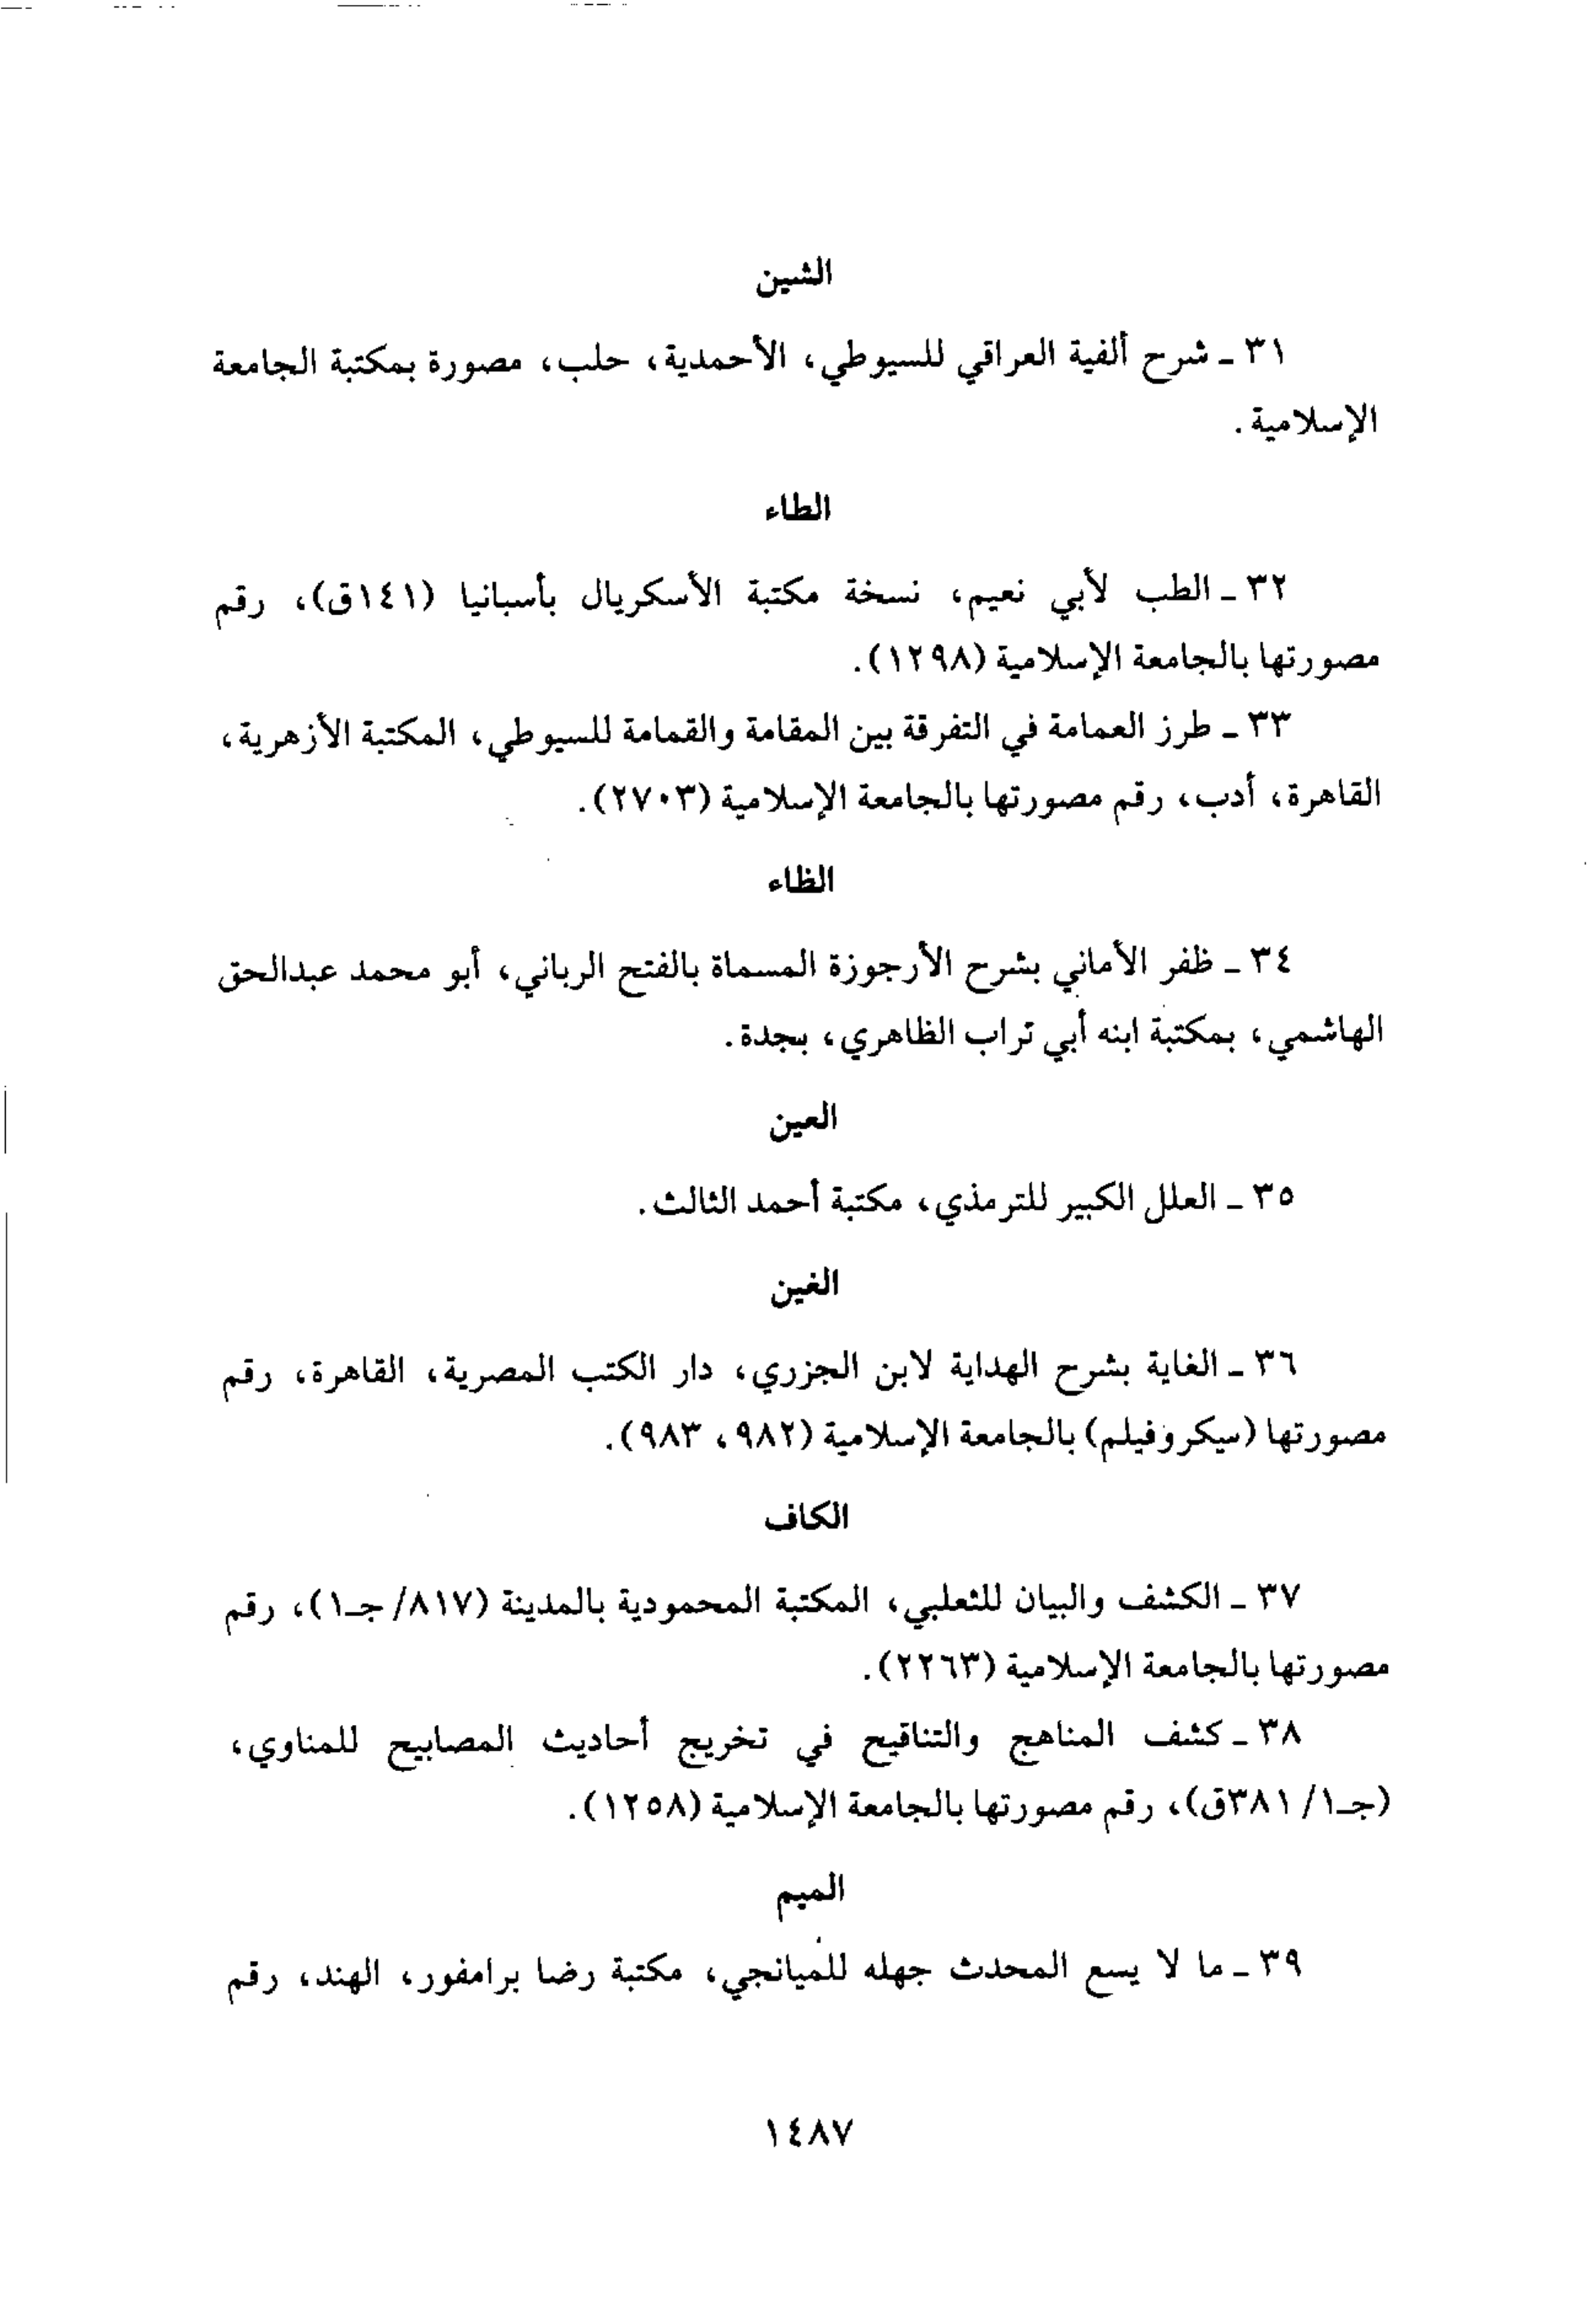 الشين
٣١ ـ شرح ألفية العراقي للسيوطي، الأحمدية، حلب، مصورة بمكتبة الجامعة
الإسلامية.
الطاء
٣٢ ـ الطب لأبي نعيم، نسخة مكتبة الأسكريال بأسبانيا (١٤١ق)، رقم
مصورتها بالجامعة الإسلامية (١٢٩٨).
٣٣ ـ طرز العمامة في التفرقة بين المقامة والقمامة للسيوطي، المكتبة الأزهرية،
القاهرة، أدب، رقم مصورتها بالجامعة الإسلامية (٢٧٠٣).
الظاء
٣٤ ـ ظفر الأماني بشرح الأرجوزة المسماة بالفتح الرباني، أبو محمد عبدالحق
الهاشمي، بمكتبة ابنه أبي تراب الظاهري، بجدة.
العين
٣٥ ـ العلل الكبير للترمذي، مكتبة أحمد الثالث.
الغين
٣٦ ـ الغاية بشرح الهداية لابن الجزري، دار الكتب المصرية، القاهرة، رقم
مصورتها (سيكروفيلم) بالجامعة الإسلامية (٩٨٢، ٩٨٣).
الكاف
٣٧ ـ الكشف والبيان للثعلبي، المكتبة المحمودية بالمدينة (٨١٧/ جـ١)، رقم
مصورتها بالجامعة الإسلامية (٢٢٦٣).
٣٨ ـ كشف المناهج والتناقيح في تخريج أحاديث المصابيح للمناوي،
(جـ١/ ٣٨١ق)، رقم مصورتها بالجامعة الإسلامية (١٢٥٨).
الميم
٣٩ ـ ما لا يسع المحدث جهله للميانجي، مكتبة رضا برامفور، الهند، رقم
١٤٨٧